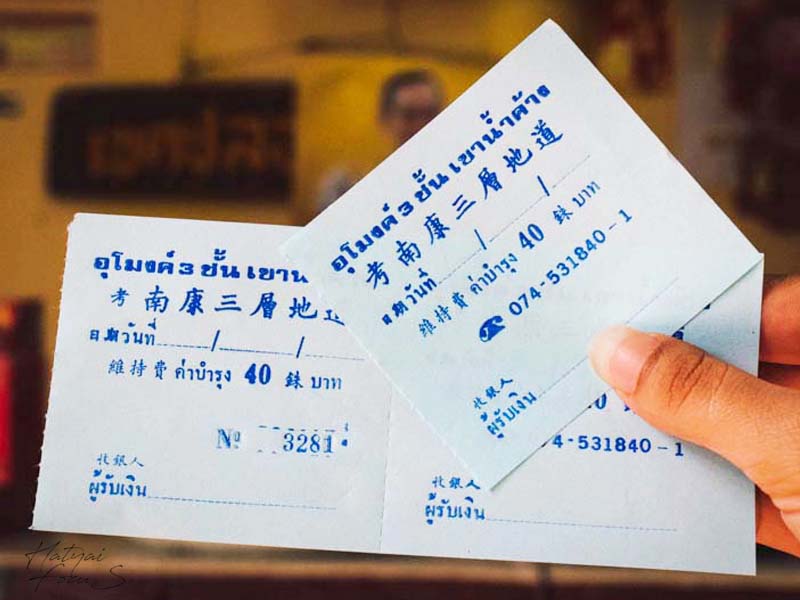 อุโมงค์ 3 ชั้น เขาน้ำค้าง
考南康三層地道
วันที่ / /
維持費 ค่าบำรุง 40 銖 บาท
074-531840-1
收銀人
ผู้รับเงิน
อุโมงค์ 3 ชั้น
考南康三層地道
วันที่ / /
維持費 ค่าบำรุง 40 銖 บาท
№ 3281
收銀人
ผู้รับเงิน
74-531840-1
收銀人
ผู้รับเงิน
Hatyai
Focus